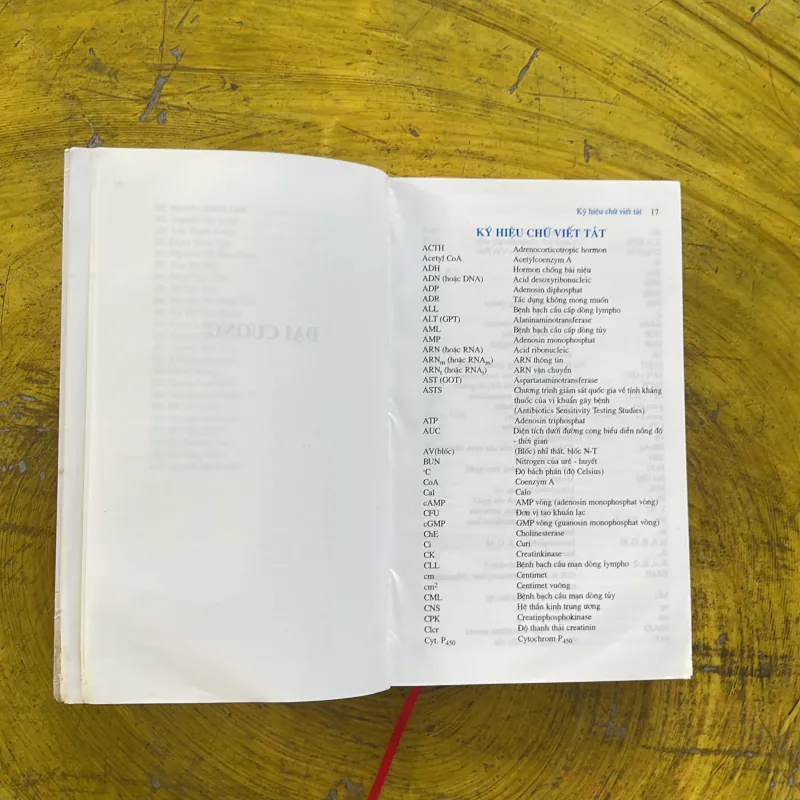 Ký hiệu chữ viết tắt 17
KÝ HIỆU CHỮ VIẾT TẮT
ACTH Adrenocorticotropic hormon
Acetyl CoA Acetylcoenzym A
ADH Hormon chống bài niệu
ADN (hoặc DNA) Acid desoxyribonucleic
ADP Adenosin diphosphat
ADR Tác dụng không mong muốn
ALL Bệnh bạch cầu cấp dòng lympho
ALT (GPT) Alaninaminotransferase
AML Bệnh bạch cầu cấp dòng tủy
AMP Adenosin monophosphat
ARN (hoặc RNA) Acid ribonucleic
ARNm (hoặc RNAm) ARN thông tin
ARNt (hoặc RNAt) ARN vận chuyển
AST (GOT) Aspartataminotransferase
ASTS Chương trình giám sát quốc gia về tính kháng
thuốc của vi khuẩn gây bệnh
(Antibiotics Sensitivity Testing Studies)
ATP Adenosin triphosphat
AUC Diện tích dưới đường cong biểu diễn nồng độ
- thời gian
AV(blốc) (Blốc) nhĩ thất, blốc N-T
BUN Nitrogen của urê - huyết
°C Độ bách phân (độ Celsius)
CoA Coenzym A
Cal Calo
cAMP AMP vòng (adenosin monophosphat vòng)
CFU Đơn vị tạo khuẩn lạc
cGMP GMP vòng (guanosin monophosphat vòng)
ChE Cholinesterase
Ci Curi
CK Creatinkinase
CLL Bệnh bạch cầu mạn dòng lympho
cm Centimet
cm² Centimet vuông
CML Bệnh bạch cầu mạn dòng tủy
CNS Hệ thần kinh trung ương
CPK Creatinphosphokinase
Clcr Độ thanh thải creatinin
Cyt. P450 Cytochrom P450
ĐẠI CƯƠNG